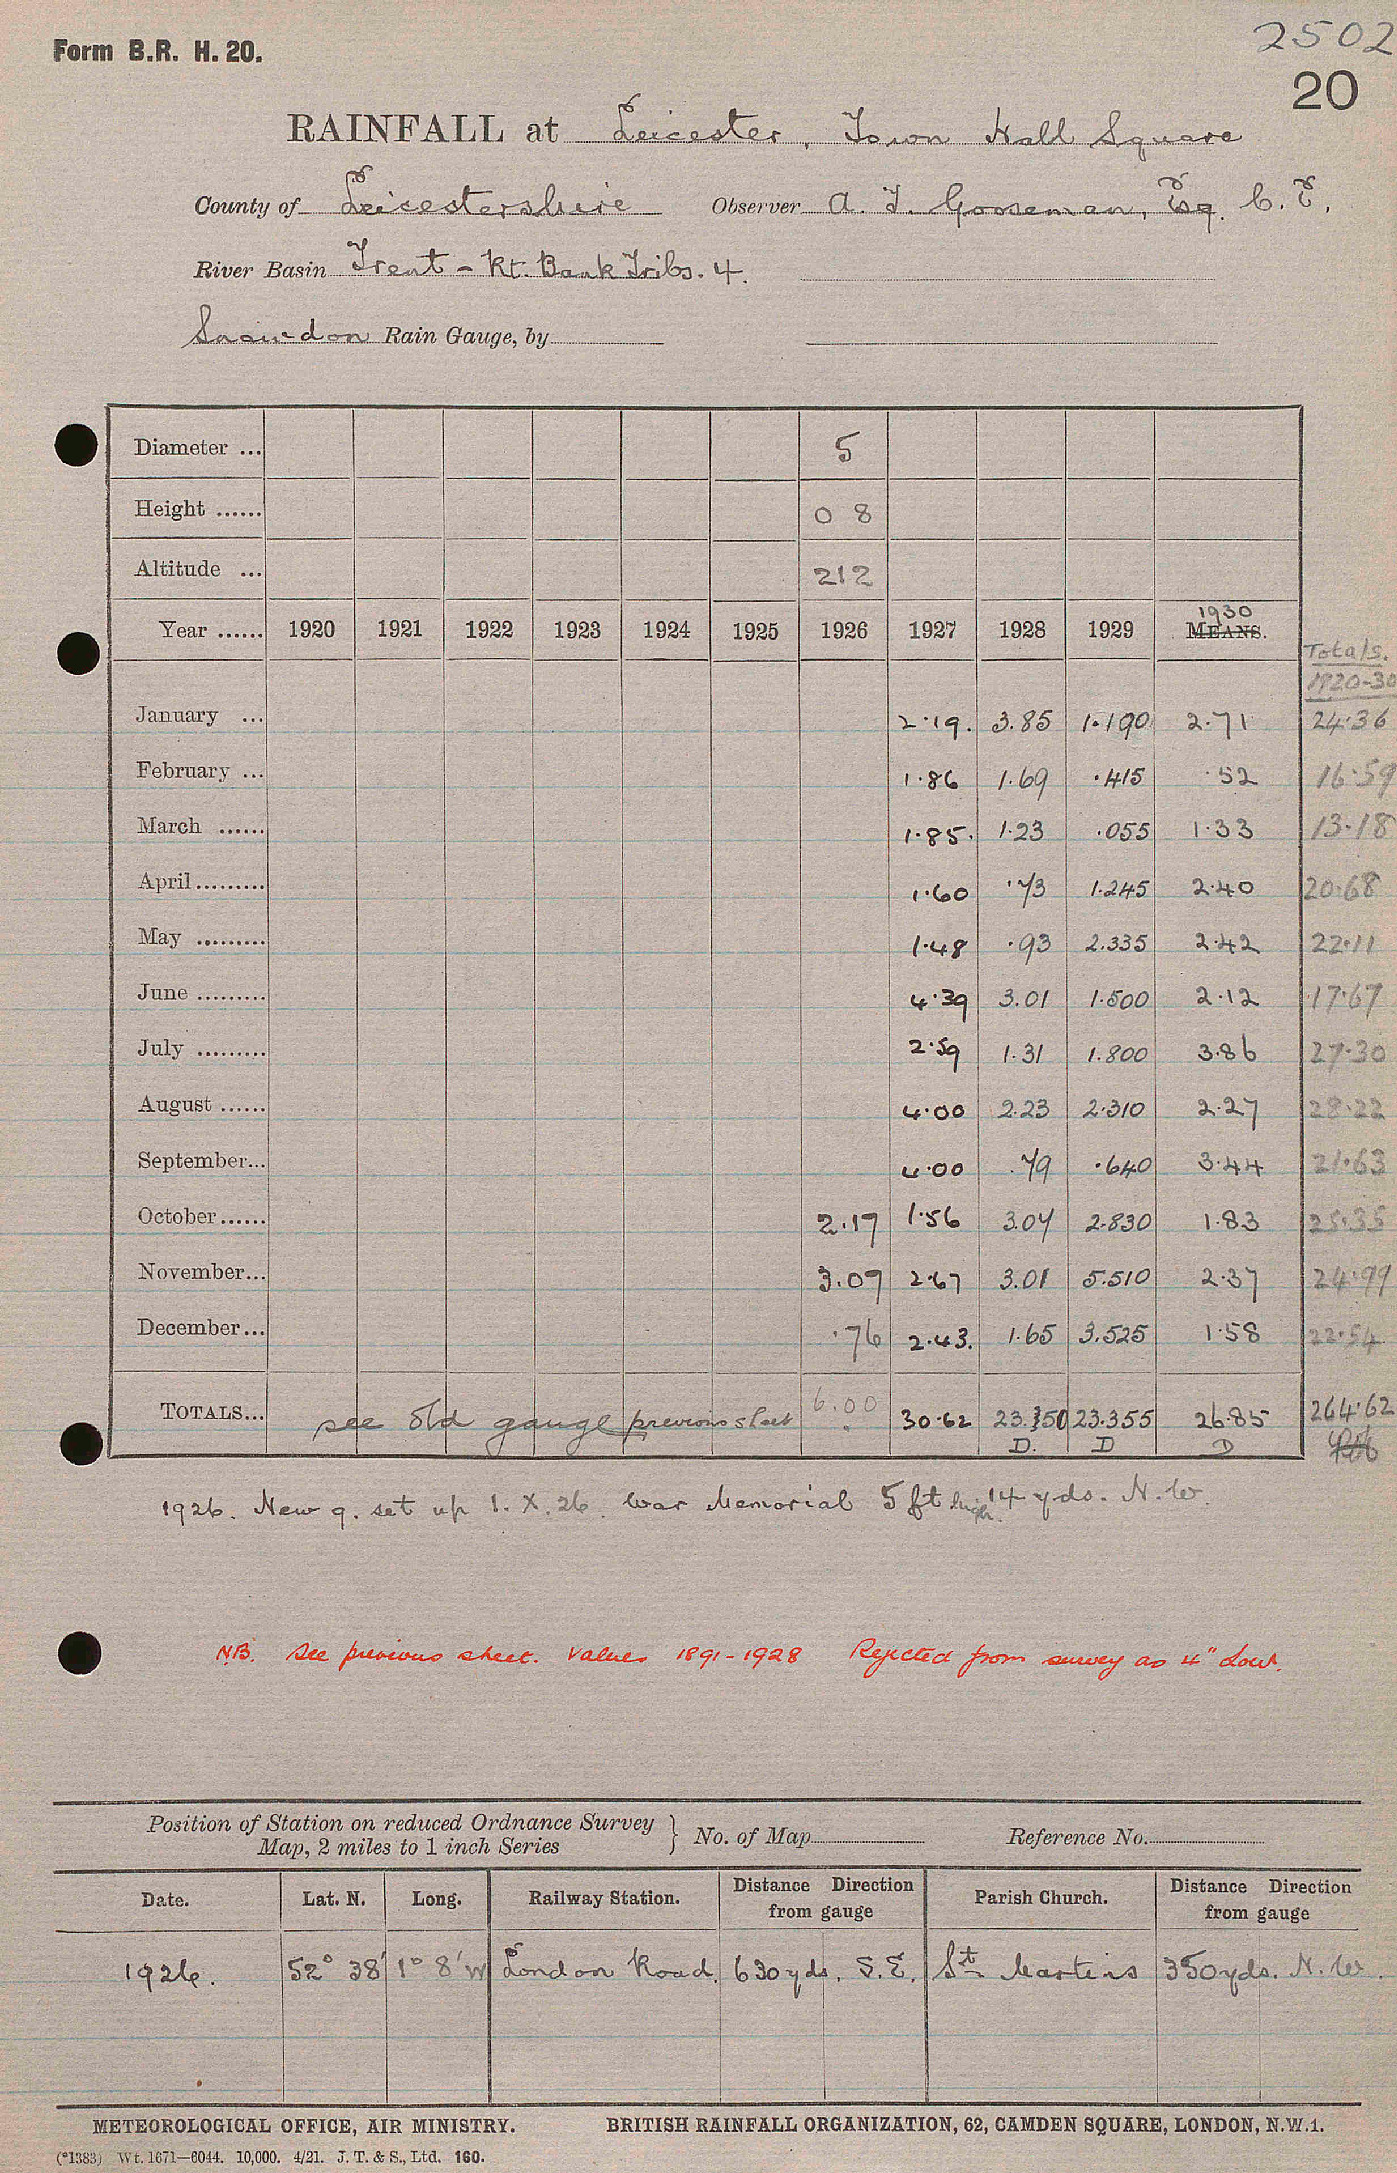 Form B.R. H. 20.
2502
20
RAINFALL at Leicester, Town Hall Square
County of Leicestershire Observer A. T. Gooseman, Esq. C.E.
River Basin Trent - Rt. Bank Tribs. 4.
Snowdon Rain Gauge, by
Diameter ... 5
Height ...... 0 8
Altitude ... 212
Year ...... 1920 1921 1922 1923 1924 1925 1926 1927 1928 1929 1930 MEANS. Totals. 1920-30
January ... 2.19. 3.85 1.190 2.71 24.36
February ... 1.86 1.69 .415 .52 16.59
March ...... 1.85. 1.23 .055 1.33 13.18
April ......... 1.60 .73 1.245 2.40 20.68
May ......... 1.48 .93 2.335 2.42 22.11
June ......... 4.39 3.01 1.500 2.12 17.67
July ......... 2.59 1.31 1.800 3.86 27.30
August ...... 4.00 2.23 2.310 2.27 28.22
September... 4.00 .79 .640 3.44 21.63
October ...... 2.17 1.56 3.07 2.830 1.83 25.35
November... 3.07 2.67 3.01 5.510 2.37 24.99
December... .76 2.43. 1.65 3.525 1.58 22.54
TOTALS... see old gauge previous sheet 6.00 30.62 23.50 23.355 26.85 264.62
D. D D
1926. New g. set up 1. X. 26. War Memorial 5 ft high 14 yds. N.W.
N.B. See previous sheet. Values 1891-1928 Rejected from survey as 4" Low.
Position of Station on reduced Ordnance Survey
Map, 2 miles to 1 inch Series } No. of Map Reference No.
Date. Lat. N. Long. Railway Station. Distance Direction from gauge Parish Church. Distance Direction from gauge
1926. 52° 38' 1° 8' W London Road. 630 yds. S.E. St Martins 350 yds. N.W.
METEOROLOGICAL OFFICE, AIR MINISTRY. BRITISH RAINFALL ORGANIZATION, 62, CAMDEN SQUARE, LONDON, N.W.1.
(*1383) Wt. 1671—6044. 10,000. 4/21. J. T. & S., Ltd. 160.